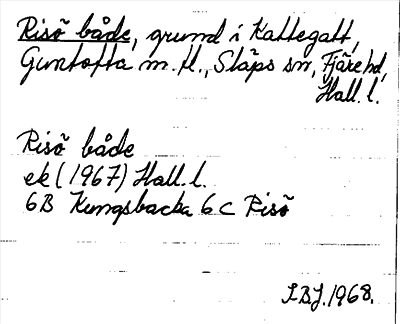 Risö både, grund i Kattegatt,
Guntofta m.fl., Släps sn, Fjäre hd,
Hall. l.
Risö både
ek (1967) Hall. l.
6B Kungsbacka 6c Risö
I.B.J. 1968.